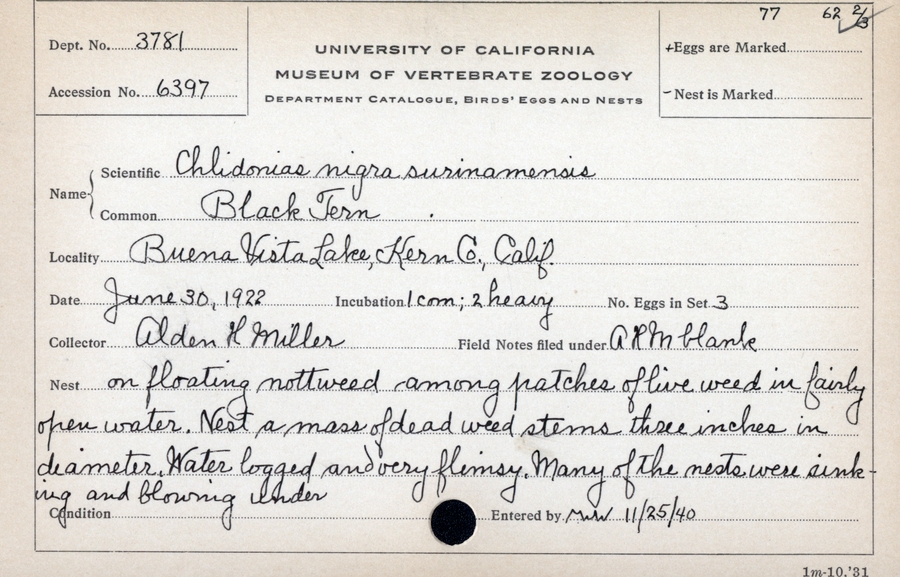 77 62 2/3
Dept. No. 3781
UNIVERSITY OF CALIFORNIA
MUSEUM OF VERTEBRATE ZOOLOGY
DEPARTMENT CATALOGUE, BIRDS' EGGS AND NESTS
+Eggs are Marked
Accession No. 6397
-Nest is Marked
Name
Scientific Chlidonias nigra surinamensis
Common Black Tern
Locality Buena Vista Lake, Kern Co., Calif.
Date June 30, 1922 Incubation 1 com; 2 heavy No. Eggs in Set 3
Collector Alden H Miller Field Notes filed under A H M blank
Nest on floating nottweed among patches of live weed in fairly
open water. Nest a mass of dead weed stems three inches in
diameter. Water logged and very flimsy. Many of the nests were sink-
ing and blowing under
Condition Entered by MW 11/25/40
1m-10,'31